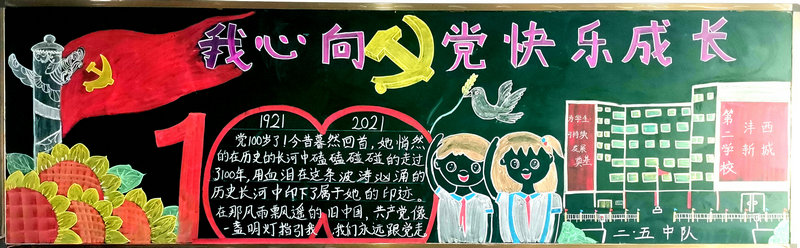 我心向党快乐成长
100
1921 2021
党100岁了!今昔暮然回首,她悄然
的在历史的长河中磕磕碰碰的走过
了100年,用血泪在这条波涛汹涌的
历史长河中印下了属于她的印迹。
在那风雨飘遥的旧中国,共产党像
一盏明灯指引我 我们永远跟党走
西
沣
城
新
第二学校
二·五中队